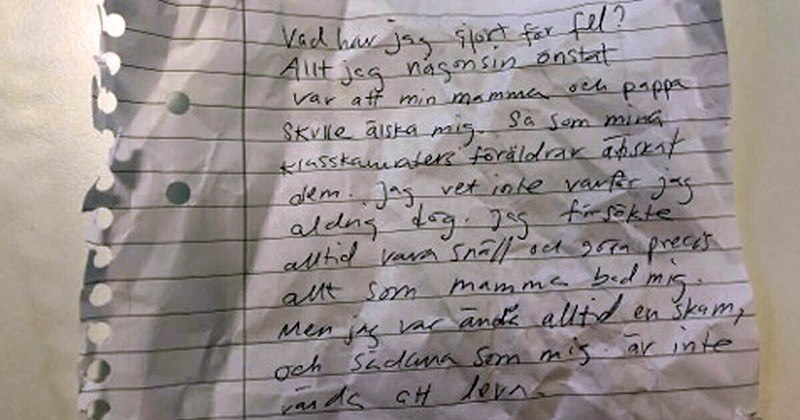 Vad har jag gjort för fel?
Allt jag någonsin önskat
var att min mamma och pappa
skulle älska mig. Så som mina
klasskamraters föräldrar älskat
dem. Jag vet inte varför jag
aldrig dög. Jag försökte
alltid vara snäll och göra precis
allt som mamma bad mig.
Men jag var ändå alltid en skam,
och sådana som mig är inte
värda att leva.